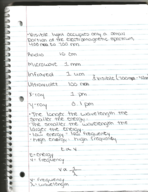 Visible light occupies only a small
portion of the electromagnetic spectrum
400 nm to 700 nm
Radio 10 cm
Microwave 1 mm
Infrared 1 um
Ultraviolet 100 nm
X-ray 1 pm
γ-ray 0.1 pm
The longer the wavelength the
smaller the energy
The smaller the wavelength the
larger the energy
low energy, low frequency
High energy, high frequency
E = energy
v = frequency